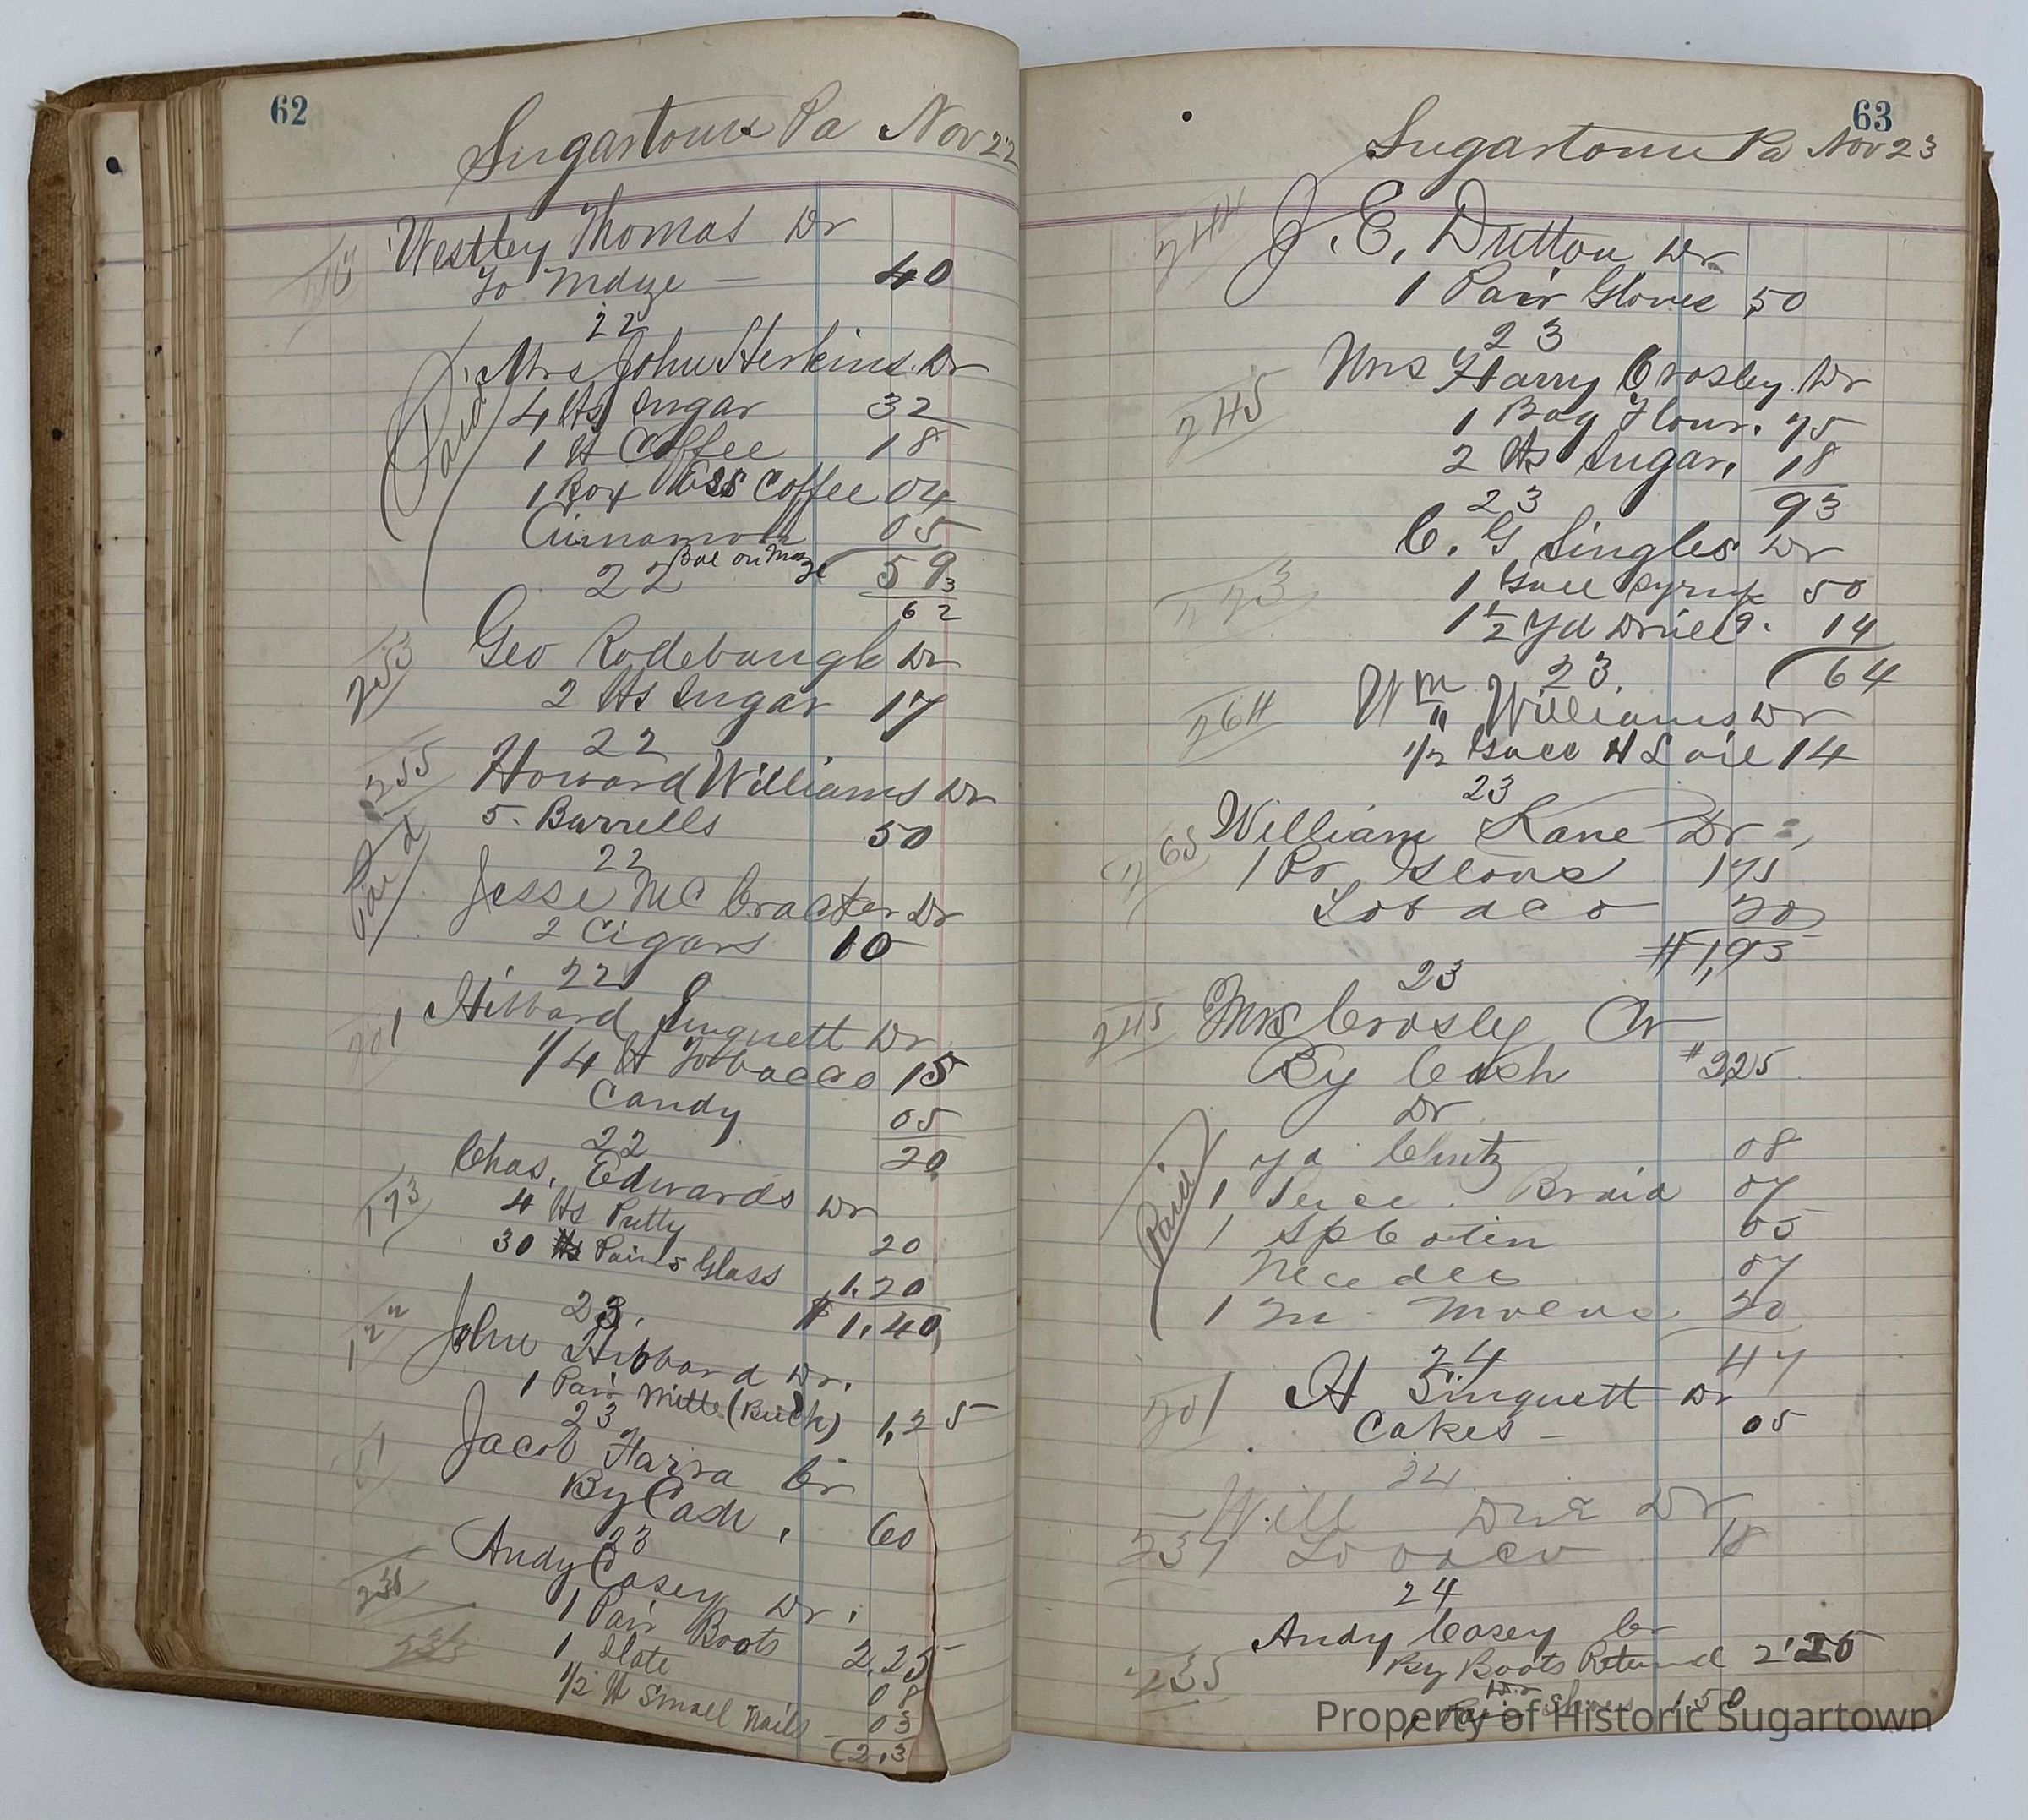 62
Sugartown Pa Nov 22
Westley Thomas Dr
To Mdze — 40
22
Mrs John Herkins Dr
Paid
4 lbs Sugar 32
1 lb Coffee 18
1 Box Ess Coffee 04
Cinnamon 05
22 Bal on Mdze 59
3
62
Geo Rodebaugh Dr
253
2 lbs Sugar 17
22
255
Howard Williams Dr
5. Barrells 50
Paid
22
Jesse McCracken Dr
2 Cigars 10
22
Hibbard Sinquett Dr
201
1/4 lb Tobacco 15
Candy 05
22 20
Chas. Edwards Dr
173
4 lbs Putty 20
30 Pains Glass 1.20
23. $1.40
122
John Hibbard Dr.
1 Pair Mitts (Buck) 1,25
23
Jacob Harra Cr
51
By Cash, 60
23
Andy Casey Dr.
235
1 Pair Boots 2,25
1 Slate 08
1/2 lb Small Nails 03
2,3
63
Sugartown Pa Nov 23
244
J. E. Dutton Dr
1 Pair Gloves ,50
23
Mrs Harry Crosley. Dr
245
1 Bag Flour. 75
2 lbs Sugar, 18
23 93
C. G Singles Dr
273
1 Gall Syrup 50
1 1/2 Yd Drill 14
23. 64
Wm Williams Dr
264
1/2 Gall H L oil 14
23
William Kane Dr
65
1 Pr Gloves 175
Tobaco 20
$1,95
23
245
Mrs Crosley Cr
By Cash $2,25
Dr
Paid
1 yd Chintz 08
1 Peice. Braid 07
1 Sp Cotten 05
Needles 07
1 20
24 47
201
H Sinquett Dr
Cakes — 05
24
Will Dr
237
Tobaco 18
24
Andy Casey Cr
235
By Boots Returnd 2'25
Dr
1 Pair Shoes 1.50
Property of Historic Sugartown